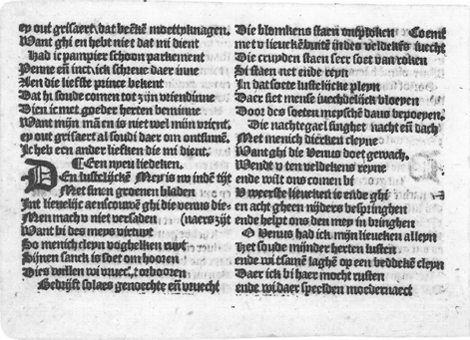 ey out grisaert, dat beckē moettyknagen.
Want ghi en hebt niet dat mi dient
Had ic pampier schoon parkement
Penne eñ inct, ick schreue daer inne
Aen die liefste prince bekent
Dat hi soude comen tot zijn vriendinne
Dien ic met goeder herten beminne
Want mijn mā en is niet wel mijn vrient.
ey out grisaert al soudi daer om ontsinnē.
Ic heb een ander liefken die mi dient.
Een nyeu liedeken.
DEn lustelijckē Mey is nv indē tijt
Met sinen groenen bladen
Int lieuelijc aenscouwē ghi die venus die-
Men mach v niet versaden (naers zijt
Want bi des meys virtuyt
So menich cleyn voghelken ruyt
Sijnen sanck is soet om hooren
Dies willen wi vruecht orbooren
Bedrijft solaes genoechte eñ vruecht
Die blomkens staen ontploken Coenit
met v lieuekē buitē indes veldekēs iuecht
Die cruyden staen seer soet van roken
Si staen net ende reyn
In dat soete lustelijcke pleyn
Daer siet mense iuechdelijck bloeyen
Door des soeten meyschē dau bespoeyen.
Die nachtegael singhet nacht eñ dach
Met menich dierken cleyne
Want ghi die Venus doet gewach.
Wendt v ten veldekens reyne
ende wilt ons comen bi
V weerste lieueken is ende ghi
en acht gheen nijders bespringhen
ende helpt ons den mey in bringhen
O Venus had ick mijn lieueken alleyn
Het soude mijnder herten lusten
ende wi tsamē laghē op een beddekē cleyn
Daer ick bi haer mocht rusten
ende wi daer speelden moedernaect